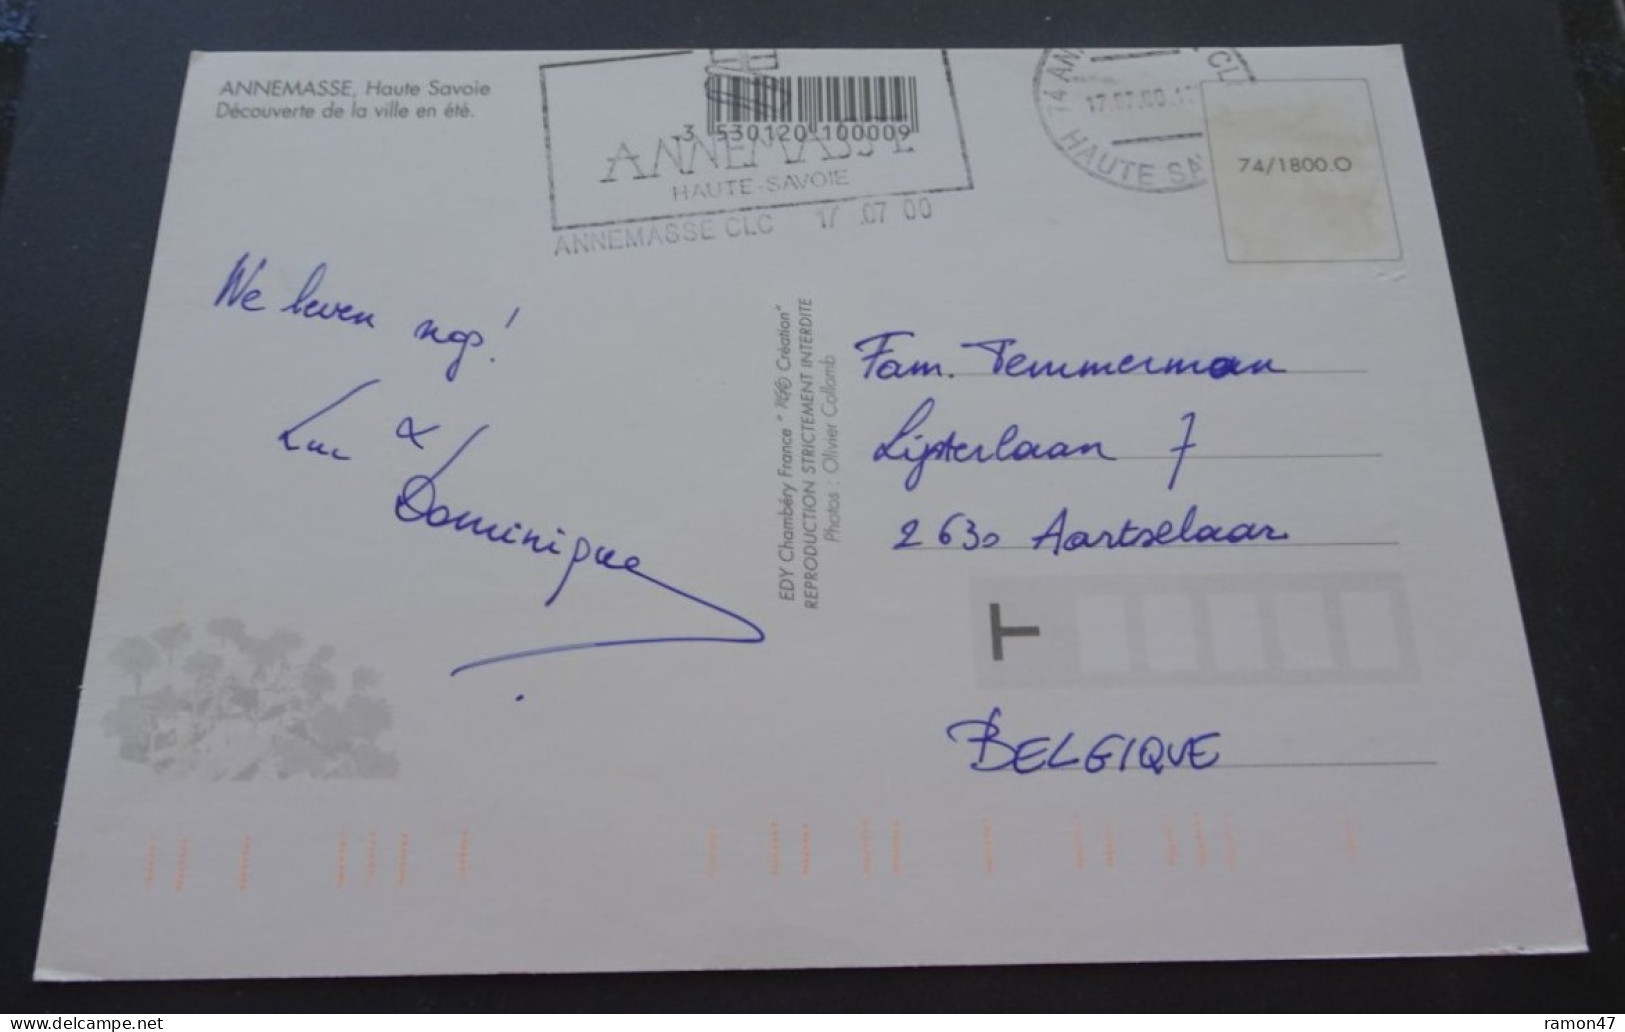 ANNEMASSE, Haute Savoie
Découverte de la ville en été.
3 530120 100009
ANNEMASSE
HAUTE-SAVOIE
ANNEMASSE CLC 17 .07 00
74 AN CL
17.07.00.17
HAUTE SA
74/1800.O
We leven nog!
Luc &
Dominique
EDY Chambéry France " Création"
REPRODUCTION STRICTEMENT INTERDITE
Photos : Olivier Collomb
Fam. Temmerman
Lijsterlaan 7
2630 Aartselaar
T
BELGIQUE
ramon47